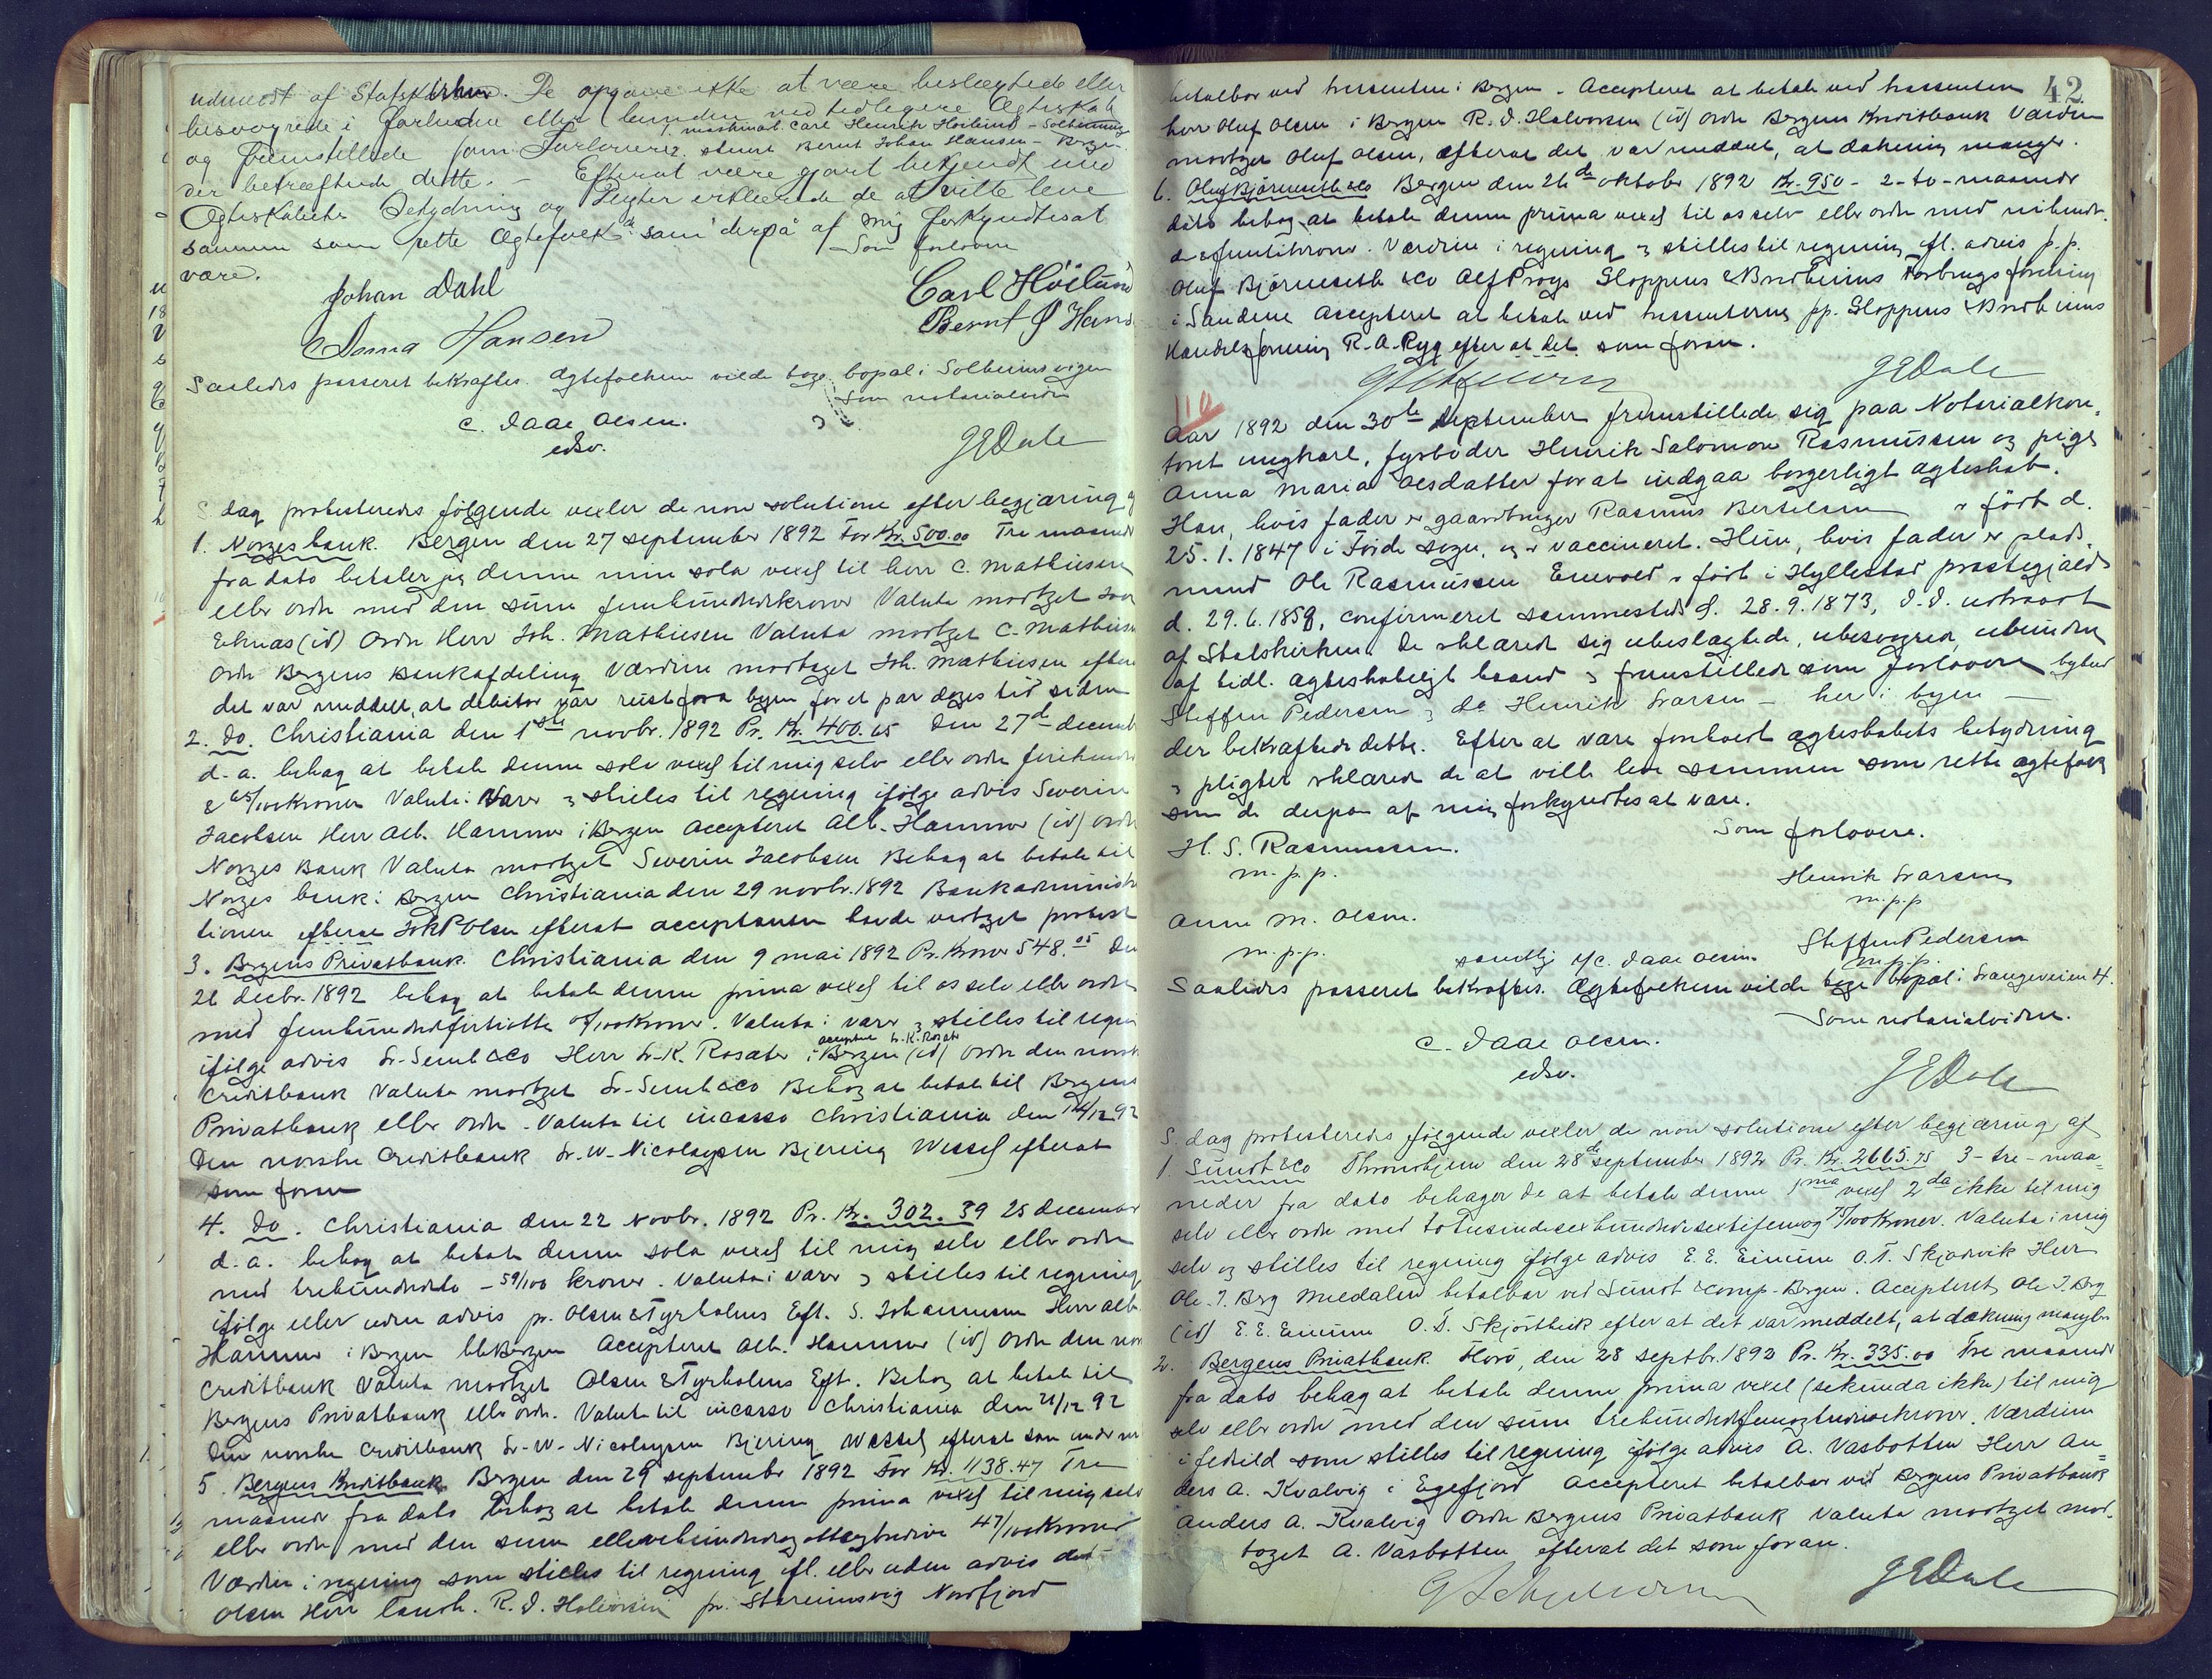 udmeldt af Statskirken. De opgave ikke at være beslægtede eller
besvogrede i forbuden eller bunden ved tidligere Ægteskab
og fremstillede som Forlovere 1, maskinat. Carl Henrik Höilund - Solheimsv
2. stuert Bernt Johan Hansen - Bergen
der bekræftede dette. - Efter at være gjort bekjendt med
Ægteskabets Betydning og Pligter erklærede de at ville leve
sammen som rette Ægtefolk som de derpå af mig forkyndtes at
være.
Som forlovere
Johan Dahl
Carl Höilund
Hansen
Bernt J Hans
Saaledes passeret bekræftes. Ægtefolkene vilde tage bopæl i Solheimsvigen
Som notarialvidne
C. Daae Olsen.
edsv.
G E Dale
S. dag protesteredes følgende vexler de non solutione efter begjæring af
1. Norges bank. Bergen den 27 september 1892 For Kr. 500.00 Tre maaneder
fra dato betaler jeg denne min sola vexel til herr C. Mathiesen
eller ordre med den sum femhundredekroner Valuta modtaget
(id) Ordre Herr Joh. Mathiesen Valuta modtaget C. Mathiesen
Ordre Bergens Bankafdeling Værdien modtaget Joh. Mathiesen efterat
det var meddelt, at debitor var reist fra byen for et par dages tid siden
2. Do. Christiania den 1ste novbr. 1892 Pr. Kr. 400.65 Den 27de decemb
d. a. behag at betale denne sola vexel til mig selv eller ordre firehundre
& 65/100 Kroner Valuta i Varer og stilles til regning ifølge advis Severin
Jacobsen Herr Alb. Hammer i Bergen Accepteret Alb. Hammer (id) Ordre
Norges Bank Valuta modtaget Severin Jacobsen Behag at betale til
Norges bank i Bergen Christiania den 29 novbr. 1892 Bankadministra
tionen efterat acceptanten havde vedtaget protest
3. Bergens Privatbank. Christiania den 9 mai 1892 Pr. Kroner 548.05 Den
decbr. 1892 behag at betale denne prima vexel til os selv eller ordre
med femhundredefirtiotte 05/100 Kroner. Valuta i varer og stilles til regni
accepteret L. K. Rosater
ifølge advis Herr L. K. Rosater i Bergen (id) Ordre den norske
Creditbank Valuta modtaget Behag at betale til Bergens
Privatbank eller ordre. Valuta til incasso Christiania den 14/12 92
Den norske Creditbank L. W. Nicolaysen Bjering Wessel efterat
som foran
4. Do. Christiania den 22 Novbr. 1892 Pr. Kr. 302.39 25 december
d. a. behag at betale denne sola vexel til mig selv eller ordre
med trehundredeto - 59/100 kroner. Valuta i varer og stilles til regning
ifølge eller uden advis pr. Olsen & Tyrholms Eft. S. Johannesen Herr Alb.
Hammer i Bergen Accepteret Alb. Hammer (id) Ordre den nor
Creditbank Valuta modtaget Olsen & Tyrholms Eft. Behag at betale til
Bergens Privatbank eller ordre. Valuta til incasso Christiania den 21/12 92
Den norske Creditbank L. W. Nicolaysen Bjering Wessel efterat som under
5. Bergens Kreditbank Bergen den 29 september 1892 For Kr. 1138.47 Tre
maaneder fra dato behag at betale denne prima vexel til mig selv
eller ordre med den sum ellevehundredeogotteogtredive 47/100 Kroner
Værdien i regning som stilles til regning ifl. eller uden advis
Olsen Herr landh. R. J. Halvorsen pr. Nordfjord
42
betalbar ved trassenten i Bergen - Accepteret at betale ved trassenten
herr Oluf Olsen i Bergen R. J. Halvorsen (id) Ordre Bergens Kreditbank Værdien
modtaget Oluf Olsen, efterat det var meddelt, at dækning mangl.
6. Oluf Bjørneseth & Co Bergen den 26de oktober 1892 Kr. 950 - 2 - to - maaneder
dato behag at betale denne prima vexel til os selv eller ordre med nihundr.
& femtikroner. Værdien i regning og stilles til regning ifl. advis p. p.
Oluf Bjørneseth & Co Gloppens & Bredheims Forbrugsforening
i Sandene Accepteret at betale ved trassenterne pp. Gloppens & Bredheims
Handelsforening R. A. Ryg efter at det som foran.
G E Dale
110
Aar 1892 den 30te september fremstillede sig paa Notarialkon-
toret ungkarl, fyrbøder Henrik Salomon Rasmussen og pige
Anna Maria Olsdatter for at indgaa borgerligt ægteskab.
Han, hvis fader er gaardbruger Rasmus Bertelsen er født d.
25. 1. 1847 i Førde sogn, og er vaccineret. Hun, hvis fader er plads-
mand Ole Rasmussen Enevold er født i Hyllestad præstegjæld
d. 29. 6. 1859, confirmeret sammesteds d. 28. 9. 1873, udtraadt
af Statskirken. De erklæred sig ubeslægtede, ubesvogred, ubundne
af tidl. ægteskabeligt baand og fremstillede som forlovere bybud
Steffen Pedersen og do Henrik Larsen - her i byen -
der bekræftede dette. Efter at være foreholdt ægteskabets betydning
og pligter erklæred de at ville leve sammen som rette ægtefolk
som de derpaa af mig forkyndtes at være.
Som forlovere.
H. S. Rasmussen.
m. p. p.
Henrik Larsen
m. p. p
Anne M. Olsen.
m. p. p.
Steffen Pedersen
m. p. p.
samtlig v/ C. Daae Olsen.
Saaledes passeret bekræftes. Ægtefolkene vilde tage bopæl i Langeveien 4.
Som notarialvidne.
C. Daae Olsen.
edsv.
G E Dale
S. dag protesteredes følgende vexler de non solutione efter begjæring af
1. Sundt & Co Throndhjem den 28de september 1892 Pr. Kr. 2665.75 3 - tre - maa=
neder fra dato behager De at betale denne 1ma vexel 2da ikke til mig
selv eller ordre med totusindesexhundredesextifemog 75/100 Kroner. Valuta i mig
selv og stilles til regning ifølge advis E. E. Einum O. T. Skjødvik Herr
Ole J. Berg betalbar ved Sundt & Comp. Bergen. Accepteret, Ole J. Berg
(id) E. E. Einum efter at det var meddelt, at dækning mangler
2. Bergens Privatbank. Florø, den 28 septbr. 1892 Pr. Kr. 335.00 Tre maaneder
fra dato behag at betale denne prima vexel (sekunda ikke) til mig
selv eller ordre med den sum trehundredefemogtredivekroner. Værdien
i fedsild som stilles til regning ifølge advis A. Vasbotten Herr An=
ders A. Kvalvig i Egefjord Accepteret betalbar ved Bergens Privatbank
Anders A. Kvalvig Ordre Bergens Privatbank Valuta modtaget mod-
taget A. Vasbotten efterat det som foran.
G E Dale